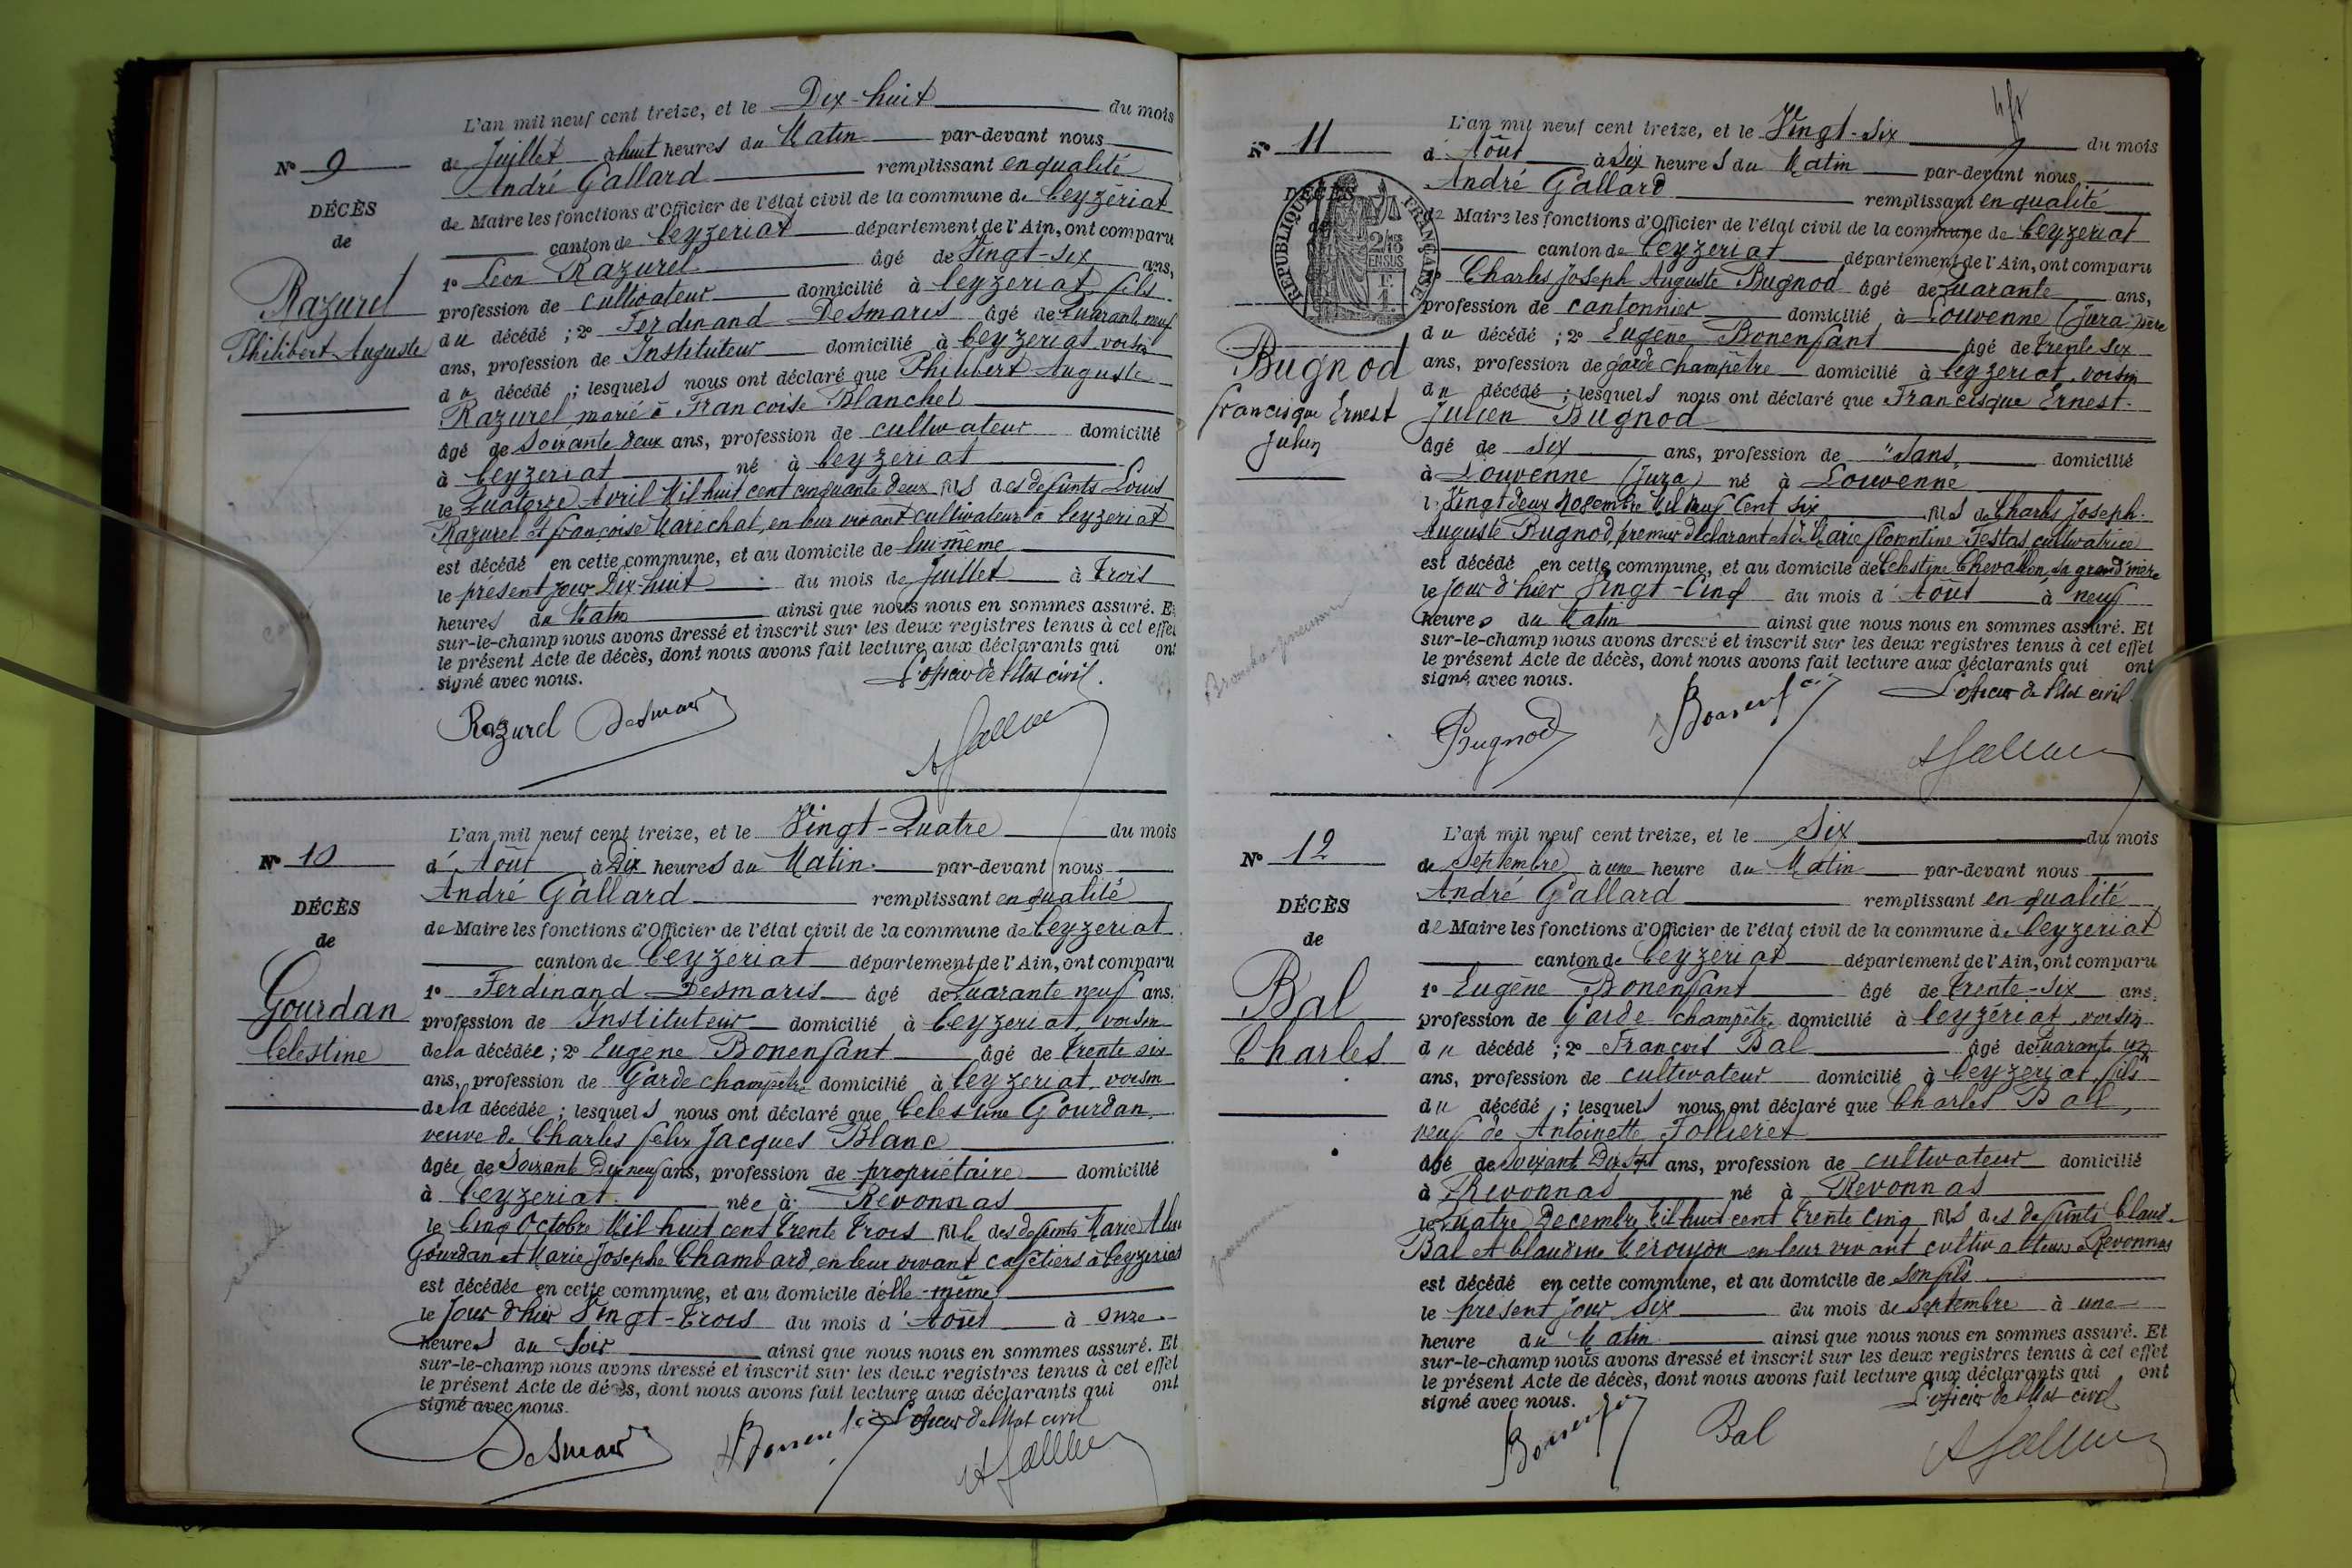 L'an mil neuf cent treize, et le Dix-huit du mois
de Juillet à huit heures du Matin par-devant nous
André Gallard remplissant en qualité
de Maire les fonctions d'Officier de l'état civil de la commune de Ceyzériat
canton de Ceyzériat département de l'Ain, ont comparu
1º Léon Razurel âgé de Vingt-six ans,
profession de cultivateur domicilié à Ceyzériat fils
du décédé ; 2º Ferdinand Desmaris âgé de Quarante neuf
ans, profession de Instituteur domicilié à Ceyzériat voisin
du décédé ; lesquels nous ont déclaré que Philibert Auguste
Razurel marié à Françoise Blanchet
âgé de Soixante deux ans, profession de cultivateur domicilié
à Ceyzériat né à Ceyzériat
le Quatorze Avril Mil huit cent cinquante deux fils des defunts Louis
Razurel et françoise Maréchal, en leur vivant cultivateur à Ceyzériat
est décédé en cette commune, et au domicile de lui-même
le présent jour Dix-huit du mois de Juillet à Trois
heures du Matin ainsi que nous nous en sommes assuré. Et
sur-le-champ nous avons dressé et inscrit sur les deux registres tenus à cet effet
le présent Acte de décès, dont nous avons fait lecture aux déclarants qui ont
signé avec nous. L'officier de l'Etat civil.
Razurel Desmaris AGallard
Nº 9
DÉCÈS
de
Razurel
Philibert Auguste
L'an mil neuf cent treize, et le Vingt-Quatre du mois
d' Août à Dix heures du Matin par-devant nous
André Gallard remplissant en qualité
de Maire les fonctions d'Officier de l'état civil de la commune de Ceyzériat
canton de Ceyzériat département de l'Ain, ont comparu
1º Ferdinand Desmaris âgé de Quarante neuf ans,
profession de Instituteur domicilié à Ceyzériat, voisin
de la décédée ; 2º Eugène Bonenfant âgé de Trente six
ans, profession de Garde champêtre domicilié à Ceyzériat, voisin
de la décédée ; lesquels nous ont déclaré que Celestine Gourdan,
veuve de Charles felix Jacques Blanc
âgée de Soixante Dix neuf ans, profession de propriétaire domicilié
à Ceyzériat née à Revonnas
le Cinq Octobre Mil huit cent Trente Trois fille des defunts Marie
Gourdan et Marie Josephe Chambard, en leur vivant cafetiers à Ceyzériat
est décédée en cette commune, et au domicile d'elle-même
le Jour d'hier Vingt-Trois du mois d' Août à onze
heures du Soir ainsi que nous nous en sommes assuré. Et
sur-le-champ nous avons dressé et inscrit sur les deux registres tenus à cet effet
le présent Acte de décès, dont nous avons fait lecture aux déclarants qui ont
signé avec nous. L'officier de l'Etat civil
Desmaris Bonenfant AGallard
Nº 10
DÉCÈS
de
Gourdan
Celestine
L'an mil neuf cent treize, et le Vingt-Six du mois
d' Août à Six heures du Matin par-devant nous
André Gallard remplissant en qualité
de Maire les fonctions d'Officier de l'état civil de la commune de Ceyzériat
canton de Ceyzériat département de l'Ain, ont comparu
1º Charles Joseph Auguste Bugnod âgé de Quarante ans,
profession de cantonnier domicilié à Louvenne (Jura) père
du décédé ; 2º Eugène Bonenfant âgé de trente six
ans, profession de garde champêtre domicilié à Ceyzériat, voisin
du décédé ; lesquels nous ont déclaré que Francisque Ernest
Julien Bugnod
âgé de six ans, profession de "Sans" domicilié
à Louvenne (Jura) né à Louvenne
le Vingt deux Novembre Mil neuf Cent six fils de Charles Joseph
Auguste Bugnod, premier déclarant et de Marie florentine Testas, cultivatrice
est décédé en cette commune, et au domicile de Célestine Chevallon, sa grand'mère
le jour d'hier Vingt-Cinq du mois d' Août à neuf
heures du Matin ainsi que nous nous en sommes assuré. Et
sur-le-champ nous avons dressé et inscrit sur les deux registres tenus à cet effet
le présent Acte de décès, dont nous avons fait lecture aux déclarants qui ont
signé avec nous. L'officier de l'Etat civil
Bugnod Bonenfant AGallard
Nº 11
DÉCÈS
de
RÉPUBLIQUE FRANÇAISE
2/10 EN SUS
1 F.
Bugnod
francisque Ernest
Julien
Broncho-pneumonie
L'an mil neuf cent treize, et le Six du mois
de Septembre à une heure du Matin par-devant nous
André Gallard remplissant en qualité
de Maire les fonctions d'Officier de l'état civil de la commune de Ceyzériat
canton de Ceyzériat département de l'Ain, ont comparu
1º Eugène Bonenfant âgé de Trente-Six ans,
profession de Garde champêtre domicilié à Ceyzériat, voisin
du décédé ; 2º François Bal âgé de Quarante un
ans, profession de cultivateur domicilié à Ceyzériat, fils
du décédé ; lesquels nous ont déclaré que Charles Bal,
veuf de Antoinette Follieret
âgé de Soixante Dix Sept ans, profession de cultivateur domicilié
à Revonnas né à Revonnas
le Quatre Decembre Mil huit cent trente cinq fils des defunts Claude
Bal et Claudine en leur vivant cultivateurs à Revonnas
est décédé en cette commune, et au domicile de son fils
le présent jour six du mois de Septembre à une
heure du Matin ainsi que nous nous en sommes assuré. Et
sur-le-champ nous avons dressé et inscrit sur les deux registres tenus à cet effet
le présent Acte de décès, dont nous avons fait lecture aux déclarants qui ont
signé avec nous. L'officier de l'Etat civil
Bonenfant Bal AGallard
Nº 12
DÉCÈS
de
Bal
Charles